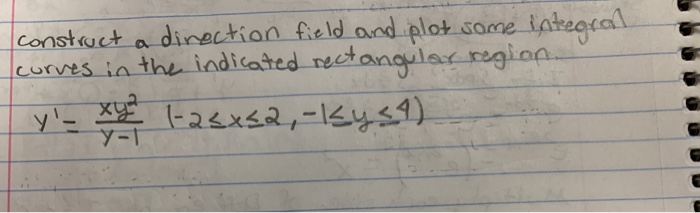 construct a direction field and plot some integral
curves in the indicated rectangular region.
y' = xy²/y-1 (-2≤x≤2, -1≤y≤4)